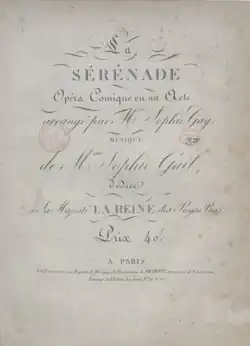 La
SÉRÉNADE
Opéra Comique en un Acte
arrangé par Mme Sophie Gay,
MUSIQUE
de Mme Sophie Gail,
Dédiée
à Sa Majesté LA REINE des Pays Bas
Prix 40f.
A PARIS